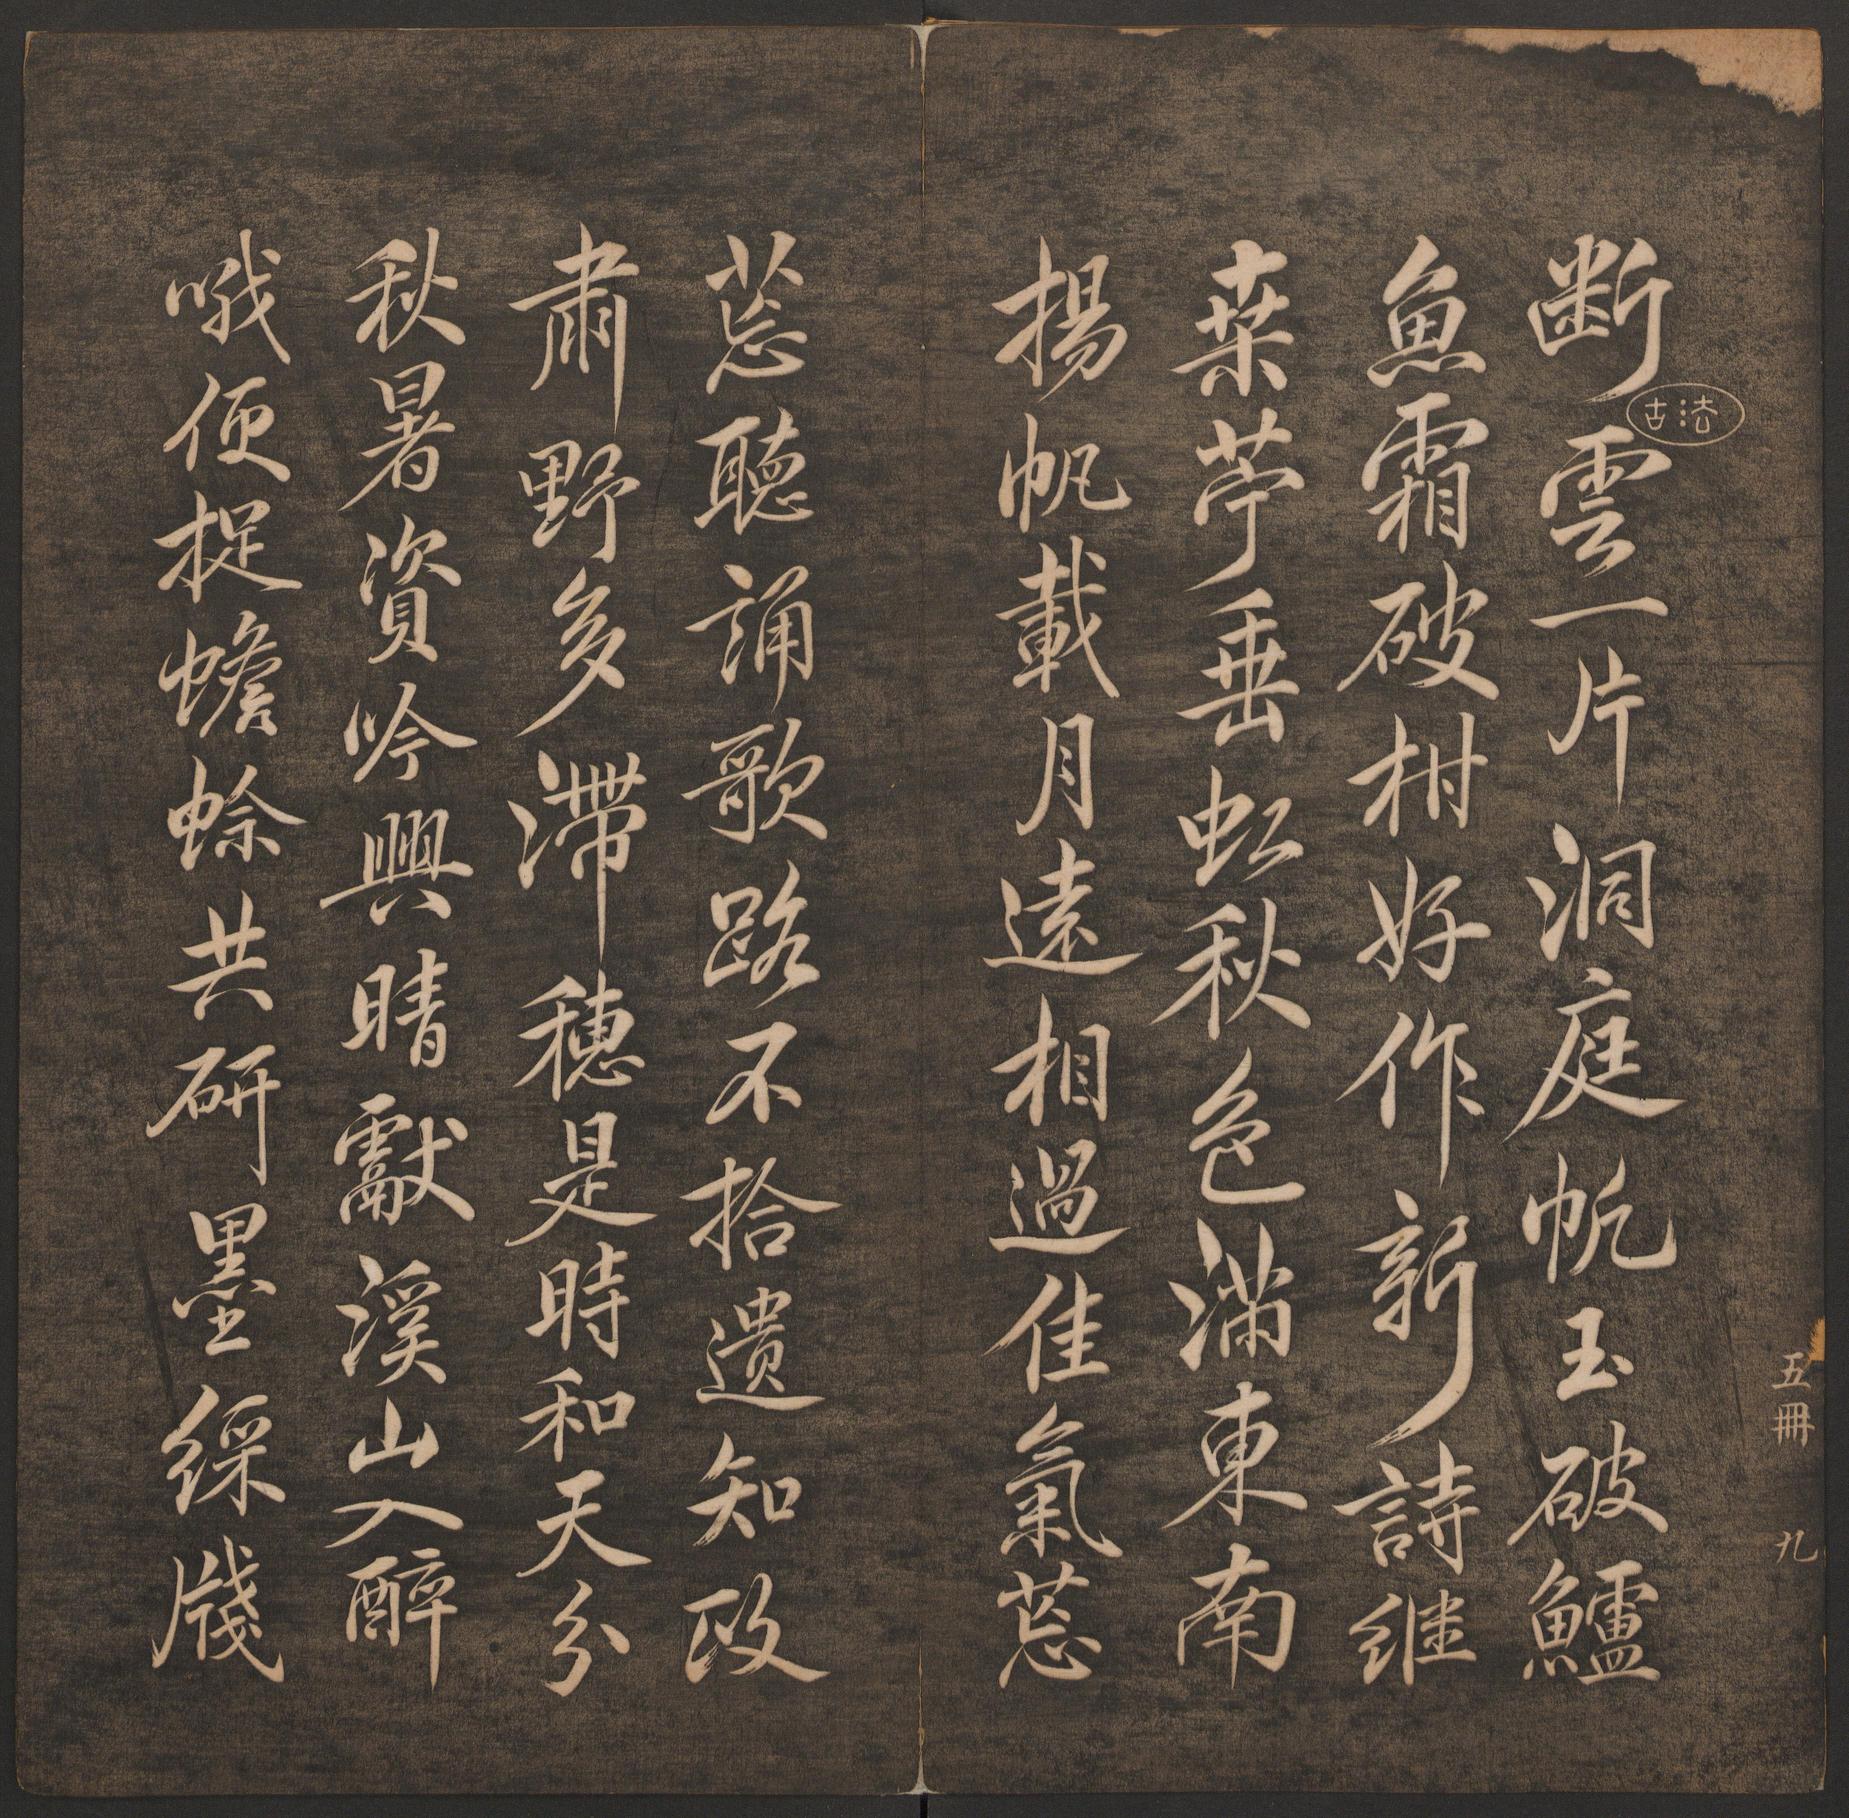 五冊 九
法古
断雲一片洞庭帆玉破鱸
魚霜破柑好作新詩継
桒苧垂虹秋色滿東南
揚帆載月遠相過佳氣葱
葱聽誦歌路不拾遺知政
肅野多滯穗是時和天分
秋暑資吟興晴獻溪山入醉
哦便捉蟾蜍共研墨綵牋